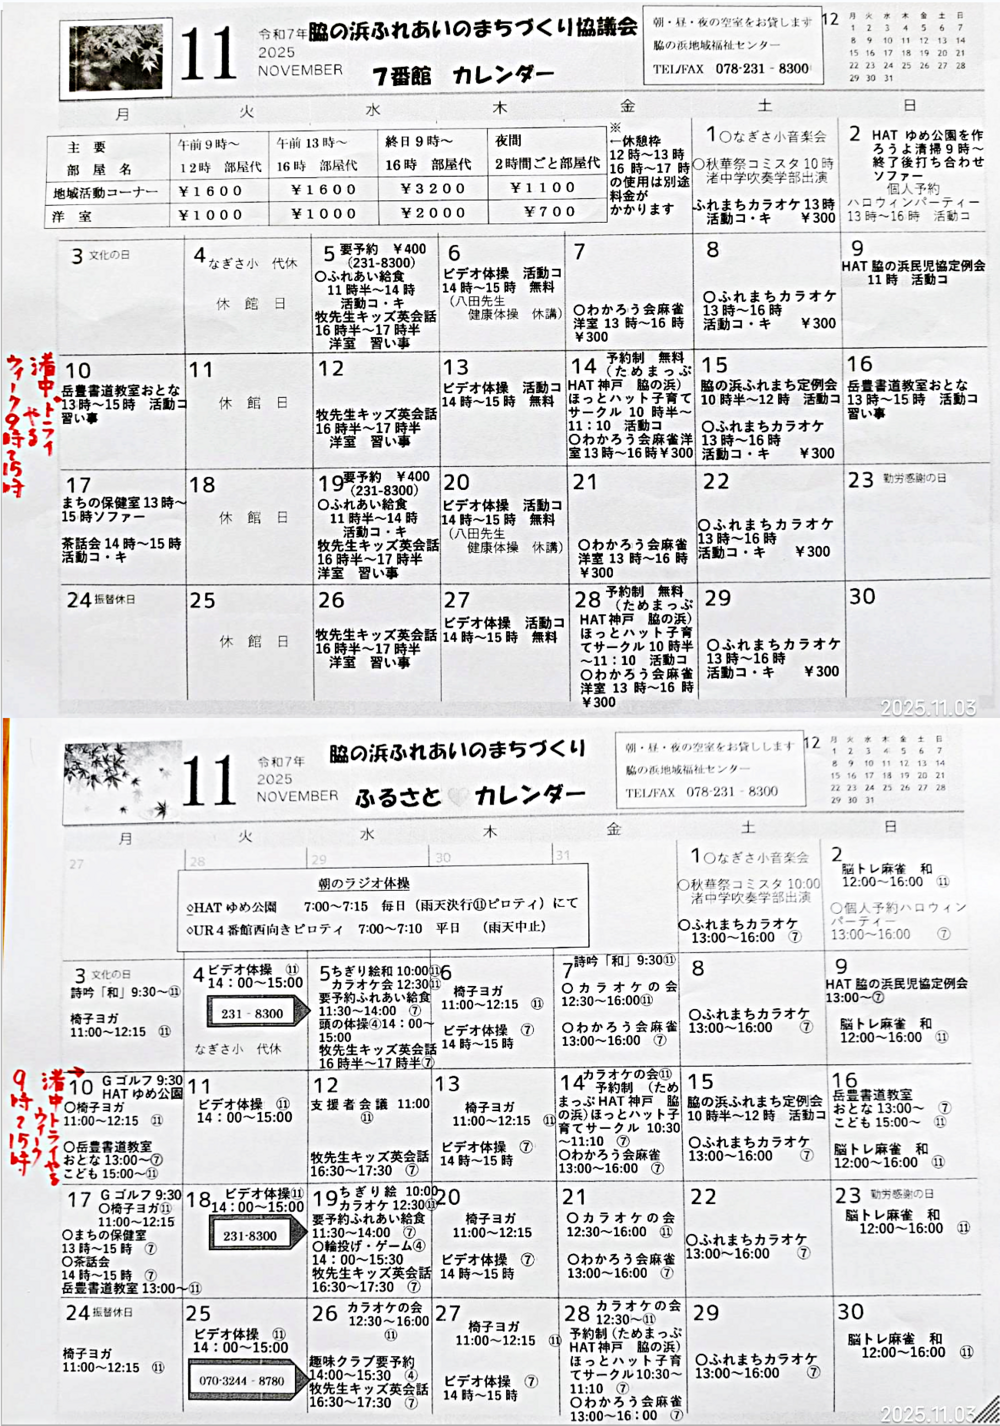 11
令和7年
2025
NOVEMBER
脇の浜ふれあいのまちづくり協議会
7番館 カレンダー
朝・昼・夜の空室をお貸します
脇の浜地域福祉センター
TEL/FAX 078-231-8300
12
月 火 水 木 金 土 日
1 2 3 4 5 6 7
8 9 10 11 12 13 14
15 16 17 18 19 20 21
22 23 24 25 26 27 28
29 30 31
月 火 水 木 金 土 日
主要 部屋名
午前9時～12時 部屋代
午前13時～16時 部屋代
終日9時～16時 部屋代
夜間 2時間ごと部屋代
地域活動コーナー ¥1600 ¥1600 ¥3200 ¥1100
洋室 ¥1000 ¥1000 ¥2000 ¥700
※
←休憩枠
12時～13時
16時～17時
の使用は別途
料金が
かかります
1 〇なぎさ小音楽会
〇秋華祭コミスタ10時
渚中学吹奏学部出演
ふれまちカラオケ13時
活動コ・キ ¥300
2 HAT ゆめ公園を作
ろうよ清掃9時～
終了後打ち合わせ
ソファー
個人予約
ハロウィンパーティー
13時～16時 活動コ
3 文化の日
4 なぎさ小 代休
休館日
5 要予約 ¥400
(231-8300)
〇ふれあい給食
11時半～14時
活動コ・キ
牧先生キッズ英会話
16時半～17時半
洋室 習い事
6
ビデオ体操 活動コ
14時～15時 無料
(八田先生
健康体操 休講)
7
〇わかろう会麻雀
洋室 13時～16時
¥300
8
〇ふれまちカラオケ
13時～16時
活動コ・キ ¥300
9
HAT 脇の浜民児協定例会
11時 活動コ
渚中トライやる
ウィーク9時～15時
10
岳豊書道教室おとな
13時～15時 活動コ
習い事
11
休館日
12
牧先生キッズ英会話
16時半～17時半
洋室 習い事
13
ビデオ体操 活動コ
14時～15時 無料
14 予約制 無料
(ためまっぷ
HAT神戸 脇の浜)
ほっとハット子育て
サークル 10時半～
11:10 活動コ
〇わかろう会麻雀洋
室13時～16時¥300
15
脇の浜ふれまち定例会
10時半～12時 活動コ
〇ふれまちカラオケ
13時～16時
活動コ・キ ¥300
16
岳豊書道教室おとな
13時～15時 活動コ
習い事
17
まちの保健室13時～
15時ソファー
茶話会14時～15時
活動コ・キ
18
休館日
19 要予約 ¥400
(231-8300)
〇ふれあい給食
11時半～14時
活動コ・キ
牧先生キッズ英会話
16時半～17時半
洋室 習い事
20
ビデオ体操 活動コ
14時～15時 無料
(八田先生
健康体操 休講)
21
〇わかろう会麻雀
洋室 13時～16時
¥300
22
〇ふれまちカラオケ
13時～16時
活動コ・キ ¥300
23 勤労感謝の日
24 振替休日
25
休館日
26
牧先生キッズ英会話
16時半～17時半
洋室 習い事
27
ビデオ体操 活動コ
14時～15時 無料
28 予約制 無料
(ためまっぷ
HAT神戸 脇の浜)
ほっとハット子育
てサークル10時半
～11:10 活動コ
〇わかろう会麻雀
洋室 13時～16時
¥300
29
〇ふれまちカラオケ
13時～16時
活動コ・キ ¥300
30
2025.11.03
11
令和7年
2025
NOVEMBER
脇の浜ふれあいのまちづくり
ふるさと♡カレンダー
朝・昼・夜の空室をお貸しします
脇の浜地域福祉センター
TEL/FAX 078-231-8300
12
月 火 水 木 金 土 日
1 2 3 4 5 6 7
8 9 10 11 12 13 14
15 16 17 18 19 20 21
22 23 24 25 26 27 28
29 30 31
月 火 水 木 金 土 日
27 28 29 30 31
朝のラジオ体操
◇HATゆめ公園 7:00～7:15 毎日(雨天決行⑪ピロティ)にて
◇UR4番館西向きピロティ 7:00～7:10 平日 (雨天中止)
1 〇なぎさ小音楽会
〇秋華祭コミスタ10:00
渚中学吹奏学部出演
〇ふれまちカラオケ
13:00～16:00 ⑦
2
脳トレ麻雀 和
12:00～16:00 ⑪
〇個人予約ハロウィン
パーティー
13:00～16:00 ⑦
3 文化の日
詩吟「和」9:30～⑪
椅子ヨガ
11:00～12:15 ⑪
4 ビデオ体操 ⑪
14：00～15:00
231-8300
なぎさ小 代休
5 ちぎり絵和 10:00⑪
カラオケ会 12:30⑪
要予約ふれあい給食
11:30～14:00 ⑦
頭の体操④14：00～
15:00
牧先生キッズ英会話
16時半～17時半⑦
6
椅子ヨガ
11:00～12:15 ⑪
ビデオ体操 ⑦
14時～15時
7 詩吟「和」9:30⑪
〇カラオケの会
12:30～16:00⑪
〇わかろう会麻雀
13:00～16:00 ⑦
8
〇ふれまちカラオケ
13:00～16:00 ⑦
9
HAT 脇の浜民児協定例会
13:00～⑦
脳トレ麻雀 和
12:00～16:00 ⑪
渚中トライやる
ウィーク
9時～15時
10 Gゴルフ 9:30
HAT ゆめ公園
〇椅子ヨガ
11:00～12:15 ⑪
〇岳豊書道教室
おとな 13:00～⑦
こども 15:00～⑪
11
ビデオ体操 ⑪
14：00～15:00
12
支援者会議 11:00
⑪
牧先生キッズ英会話
16:30～17:30 ⑦
13
椅子ヨガ
11:00～12:15 ⑪
ビデオ体操 ⑦
14時～15時
14 カラオケの会⑪
予約制 (ため
まっぷHAT神戸 脇
の浜)ほっとハット子
育てサークル 10:30
～11:10 ⑦
〇わかろう会麻雀
13:00～16:00 ⑦
15
脇の浜ふれまち定例会
10時半～12時 活動コ
〇ふれまちカラオケ
13:00～16:00 ⑦
16
岳豊書道教室
おとな 13:00～ ⑦
こども 15:00～ ⑪
脳トレ麻雀 和
12:00～16:00 ⑪
17 Gゴルフ 9:30
〇椅子ヨガ⑪
11:00～12:15
〇まちの保健室
13時～15時 ⑦
〇茶話会
14時～15時 ⑦
岳豊書道教室 13:00～⑪
18 ビデオ体操⑪
14：00～15:00
231-8300
19 ちぎり絵 10:00
カラオケ 12:30⑪
要予約ふれあい給食
11:30～14:00 ⑦
〇輪投げ・ゲーム④
14：00～15:30
牧先生キッズ英会話
16:30～17:30 ⑦
20
椅子ヨガ
11:00～12:15
ビデオ体操 ⑦
14時～15時
21
〇カラオケの会
12:30～16:00 ⑪
〇わかろう会麻雀
13:00～16:00 ⑦
22
〇ふれまちカラオケ
13:00～16:00 ⑦
23 勤労感謝の日
脳トレ麻雀 和
12:00～16:00 ⑪
24 振替休日
椅子ヨガ
11:00～12:15 ⑪
25
ビデオ体操 ⑪
14：00～15:00
070-3244-8780
26 カラオケの会
12:30～16:00
⑪
趣味クラブ要予約
14:00～15:30 ④
牧先生キッズ英会話
16:30～17:30 ⑦
27
椅子ヨガ
11:00～12:15 ⑪
ビデオ体操 ⑦
14時～15時
28 カラオケの会
12:30～⑪
予約制(ためまっぷ
HAT神戸 脇の浜)
ほっとハット子育
てサークル10:30～
11:10 ⑦
〇わかろう会麻雀
13:00～16：00 ⑦
29
〇ふれまちカラオケ
13:00～16:00 ⑦
30
脳トレ麻雀 和
12:00～16:00 ⑪
2025.11.03